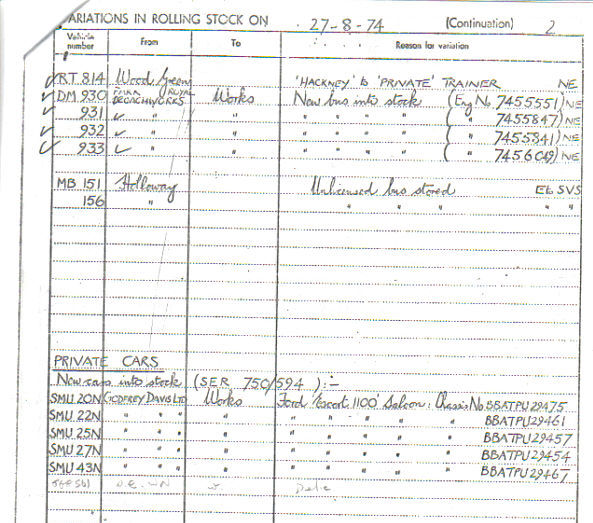 VARIATIONS IN ROLLING STOCK ON 27-8-74 (Continuation) 2
Vehicle number From To Reason for variation
✓ RT 814 Wood Green 'HACKNEY' to 'PRIVATE' TRAINER NE
✓ DM 930 PARK ROYAL COACHWORKS Works New bus into stock (Eng No 7455551) NE
✓ 931 ✓ " " " " " " ( " 7455847) NE
✓ 932 ✓ " " " " " " ( " 7455841) NE
✓ 933 ✓ " " " " " " ( " 7456049) NE
MB 151 Holloway Unlicensed bus stored Ek SVS
156 " " " " " "
PRIVATE CARS
New cars into stock (SER 750/594 ):-
SMU 20N GODFREY DAVIS LTD Works Ford 'Escort 1100' Saloon: Chassis No BBATPU29475
SMU 22N " " " " " " " " " BBATPU29461
SMU 25N " " " " " " " " " BBATPU29457
SMU 27N " " " " " " " " " BBATPU29454
SMU 43N " " " " " " " " " BBATPU29467